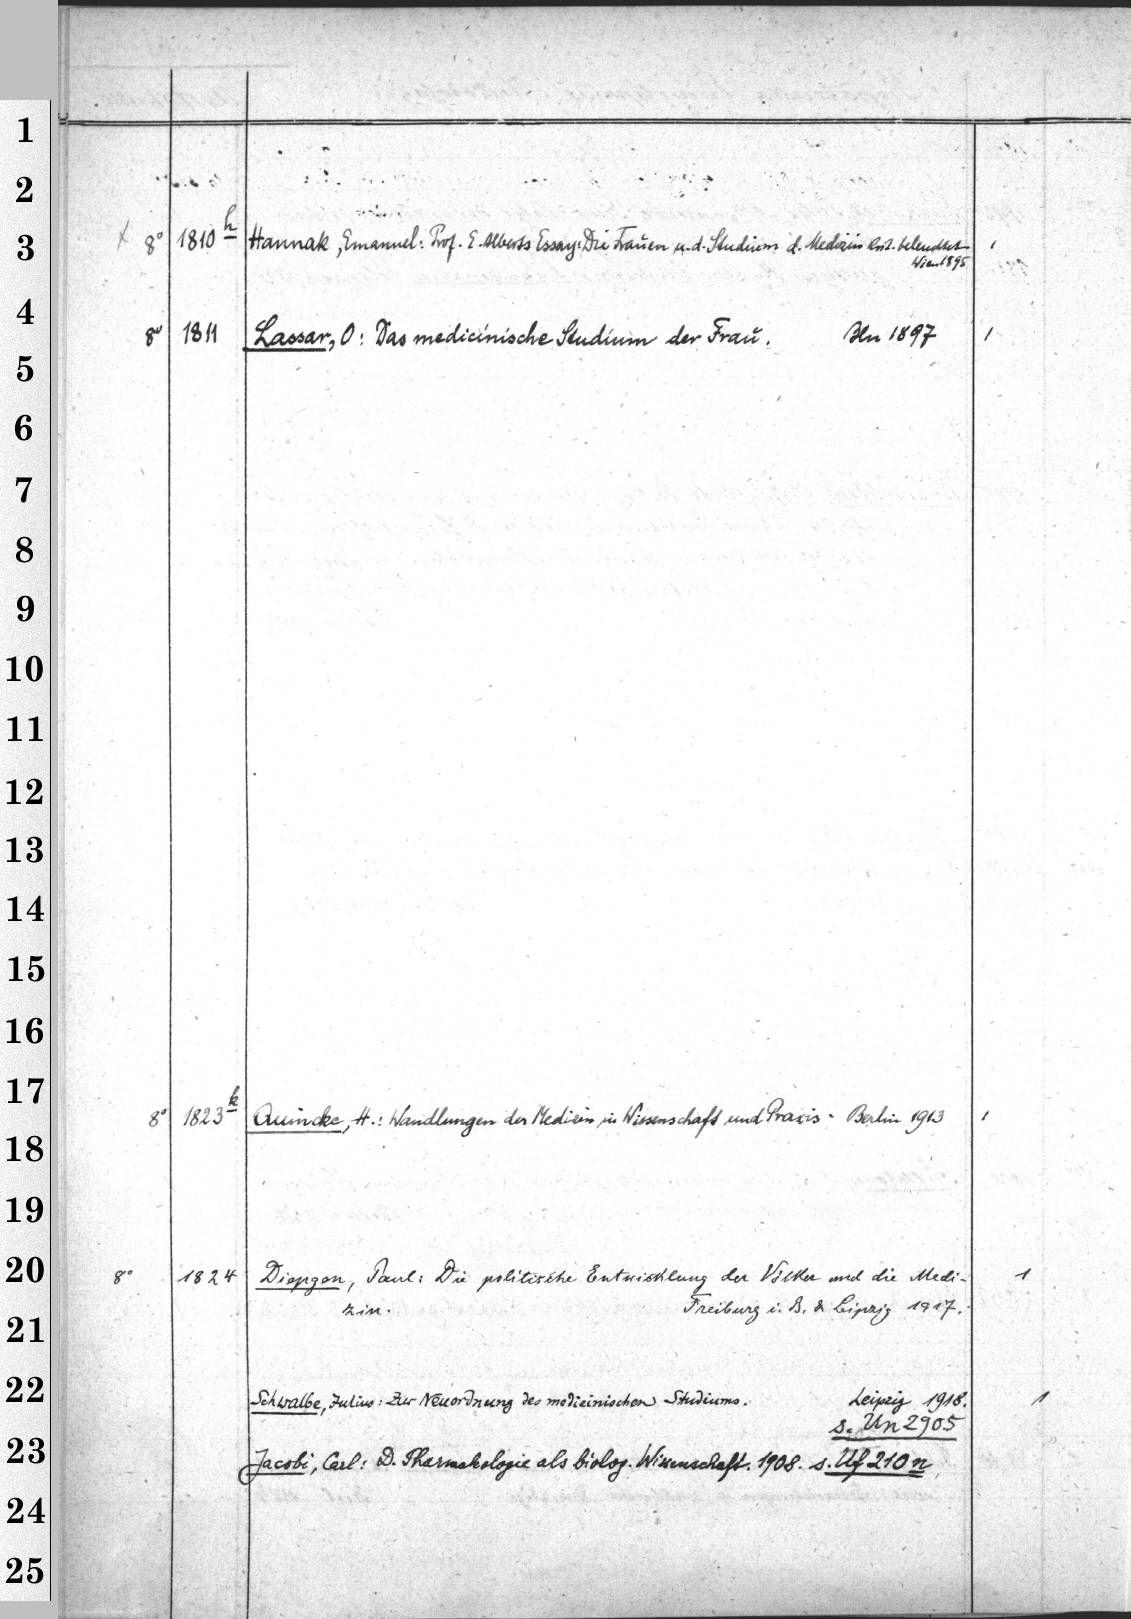 1
2
3
4
5
6
7
8
9
10
11
12
13
14
15
16
17
18
19
20
21
22
23
24
25
8° 1810 h Hannak, Emanuel: Prof. E. Alberts Essay: Die Frauen u. d. Studium d. Medizin krit. beleuchtet 1
Wien 1895
8° 1811 Lassar, O: Das medicinische Studium der Frau. Bln 1897 1
8° 1823 k Quincke, H.: Wandlungen der Medizin in Wissenschaft und Praxis. Berlin 1913 1
8° 1824 Diepgen, Paul: Die politische Entwicklung der Völker und die Medi- 1
zin. Freiburg i. B. & Leipzig 1917.
Schwalbe, Julius: Zur Neuordnung des medicinischen Studiums. Leipzig 1918. 1
s. Un 2905
Jacobi, Carl: D. Pharmakologie als biolog. Wissenschaft. 1908. s. Uf 210 n